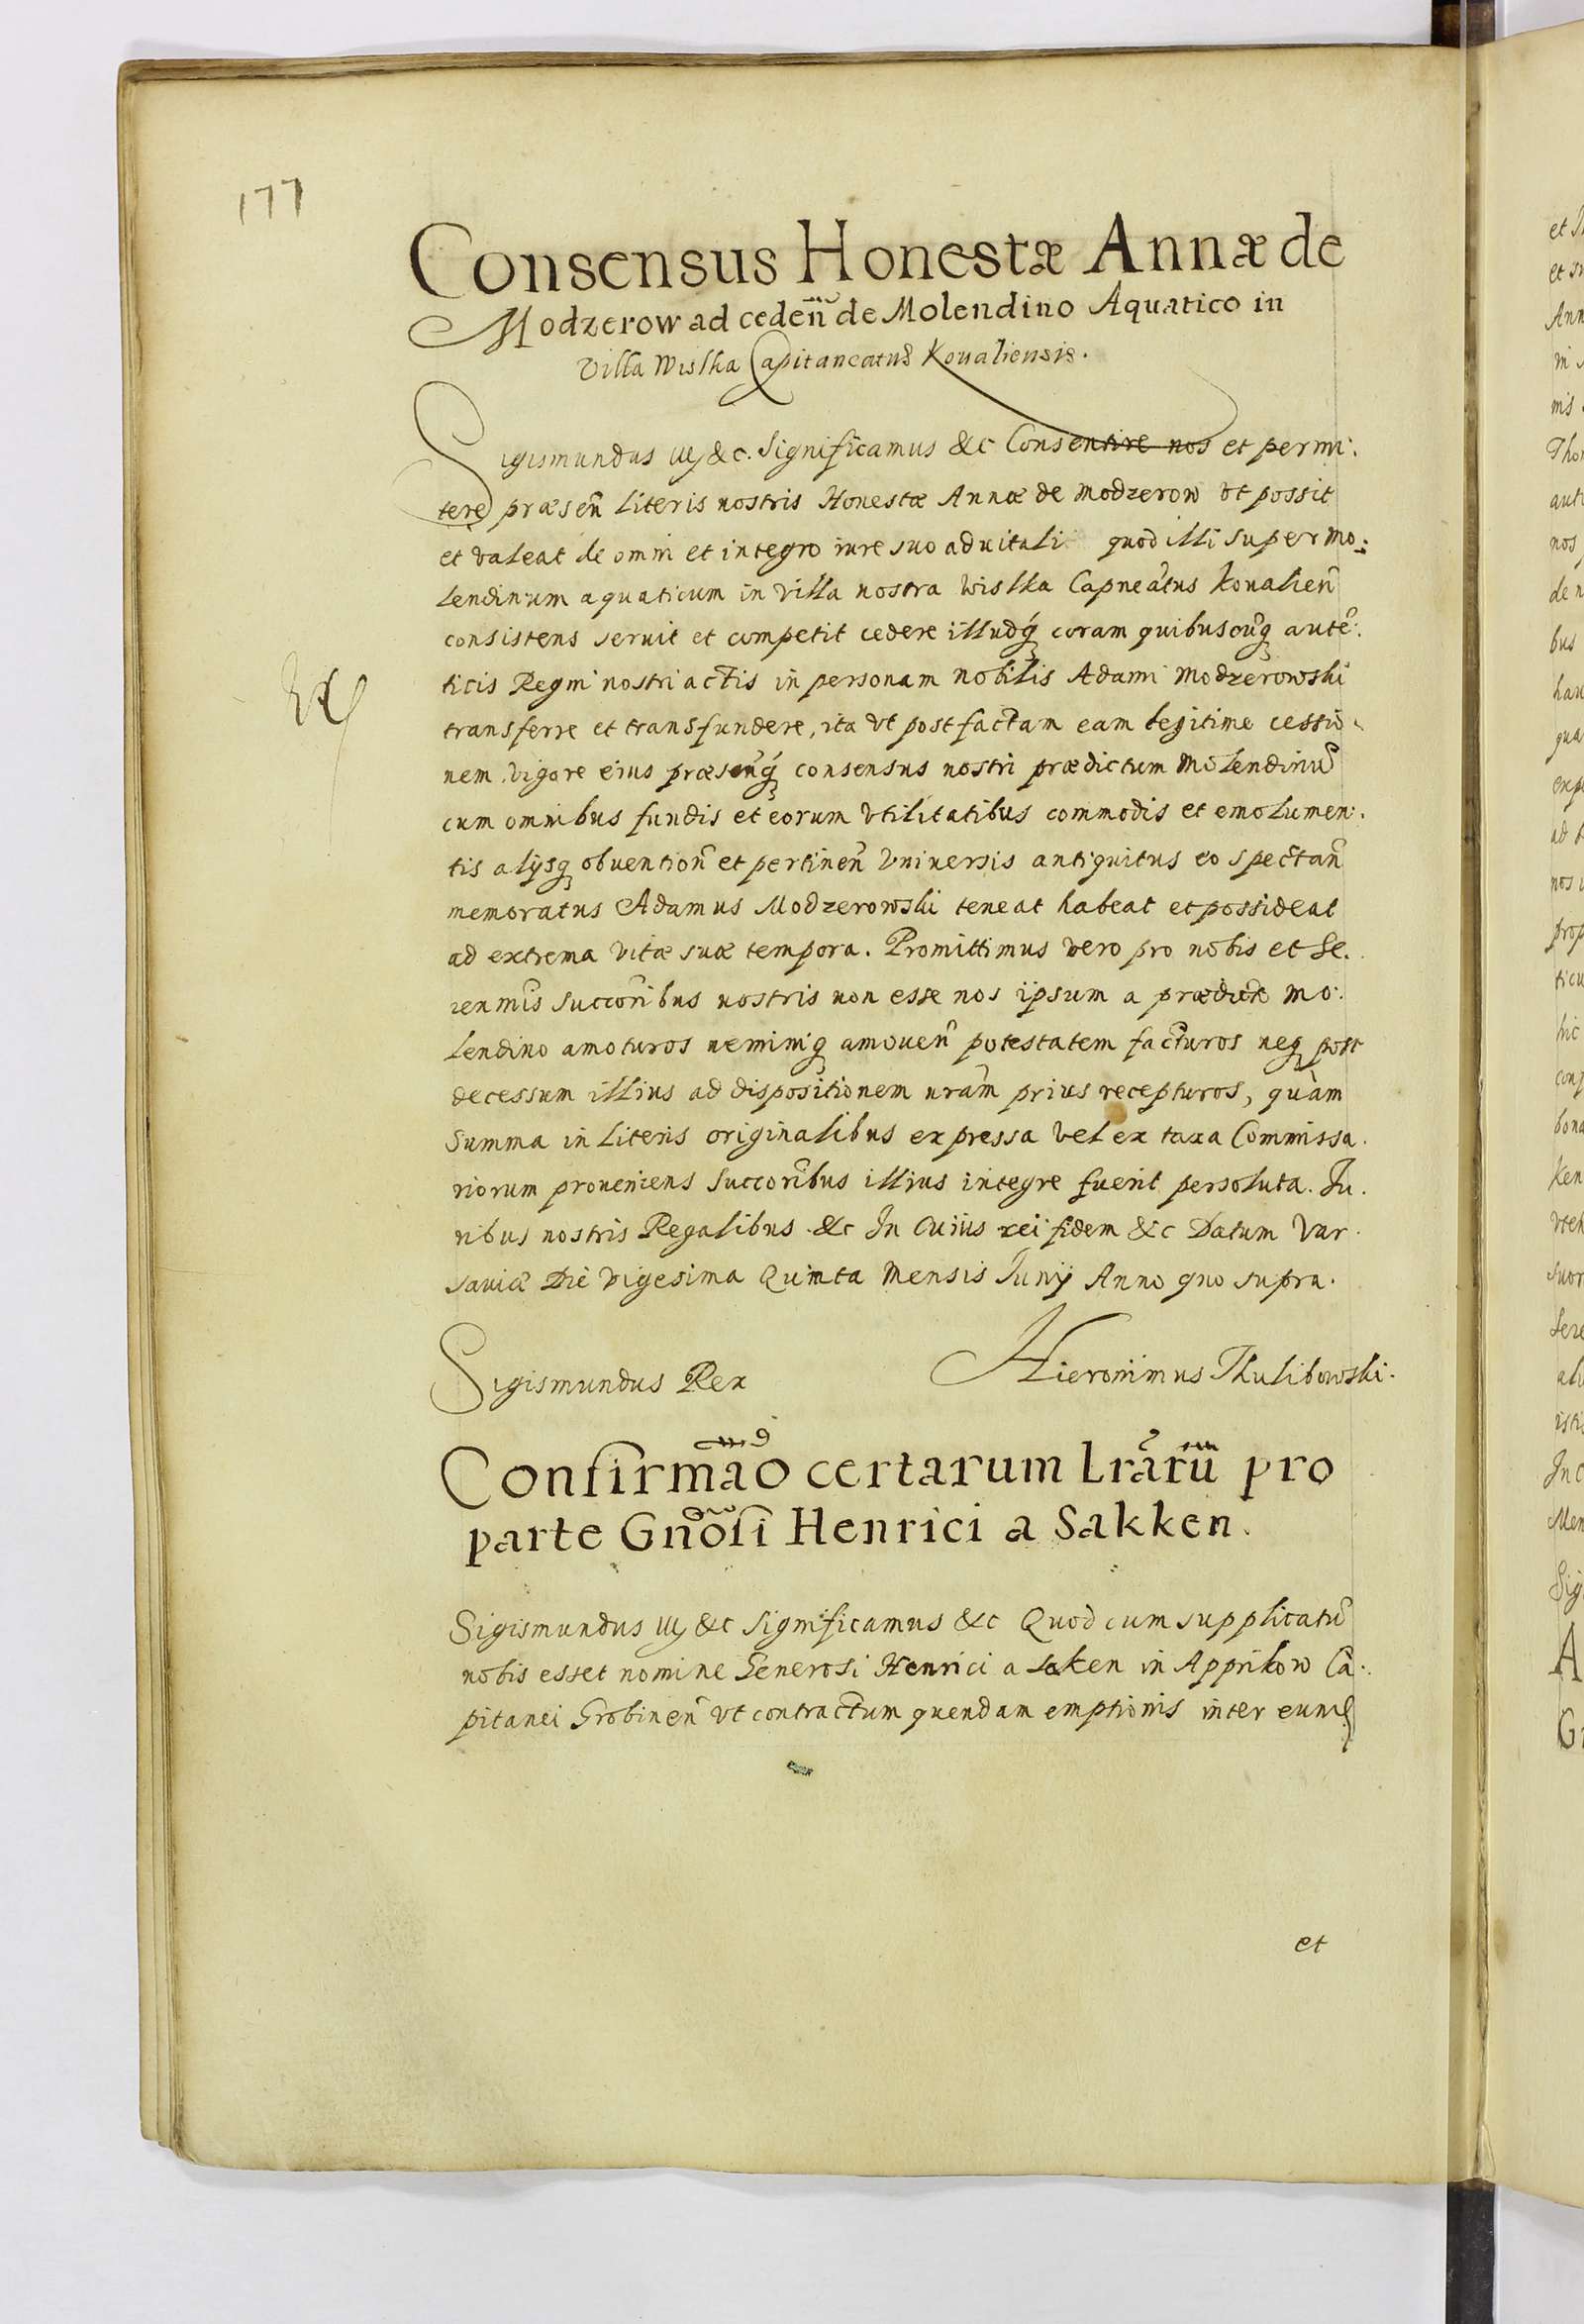 177
Consensus Honestæ Annæ de
Modzerow ad ceden̄ de Molendino Aquatico in
Villa Wislka Capitaneatus Kovaliensis.
Sigismundus iij &c. Significamus &c Consentire nos et permi:
tere præsen̄ literis nostris Honestæ Annæ de Modzerow vt possit
et valeat de omni et integro iure suo aduitali quod illi super mo:
lendinum aquaticum in villa nostra Wislka Capneat̄us Koualien̄
consistens seruit et competit cedere illudq́ coram quibuscūq auтē:
ticis Regni nostri actis in personam nobilis Adami Modzerowski
transferre et transfundere, ita vt post factam eam legitime cessio
nem vigore eius præsenq́ consensus nostri prædictum Molendinū
cum omnibus fundis et eorum vtilitatibus commodis et emolumen:
tis alijsq obvention̄ et pertinen̄ Vniuersis antiquitus eo spectan̄
memoratus Adamus Modzerowski teneat habeat et possideat
ad extrema vitæ suæ tempora. Promittimus vero pro nobis et Se.
renmīs succorībus nostris non esse nos ipsum a prædicto mo:
lendino amoturos neminiq amouen̄ potestatem facturos neq post
decessum illius ad dispositionem nram̄ prius recepturos, quàm
summa in literis originalibus expressa vel ex taxa Commissa.
riorum proueniens succorībus illius integre fuerit persoluta. Ju.
ribus nostris Regalibus &c In cuius rei fidem &c Datum Var.
saviæ Die vigesima Quinta Mensis Junij Anno quo supra.
Sigismundus Rex Hieronimus Thulibowski.
Confirmāo certarum Lrārū pro
parte Gnōsi Henrici a Sakken.
Sigismundus iij &c Significamus &c Quod cum supplicatū
nobis esset nomine Generosi Henrici a Saken in Apprikow Ca:
pitanei Grobinen̄ vt contractum quendam emptionis inter eum
et